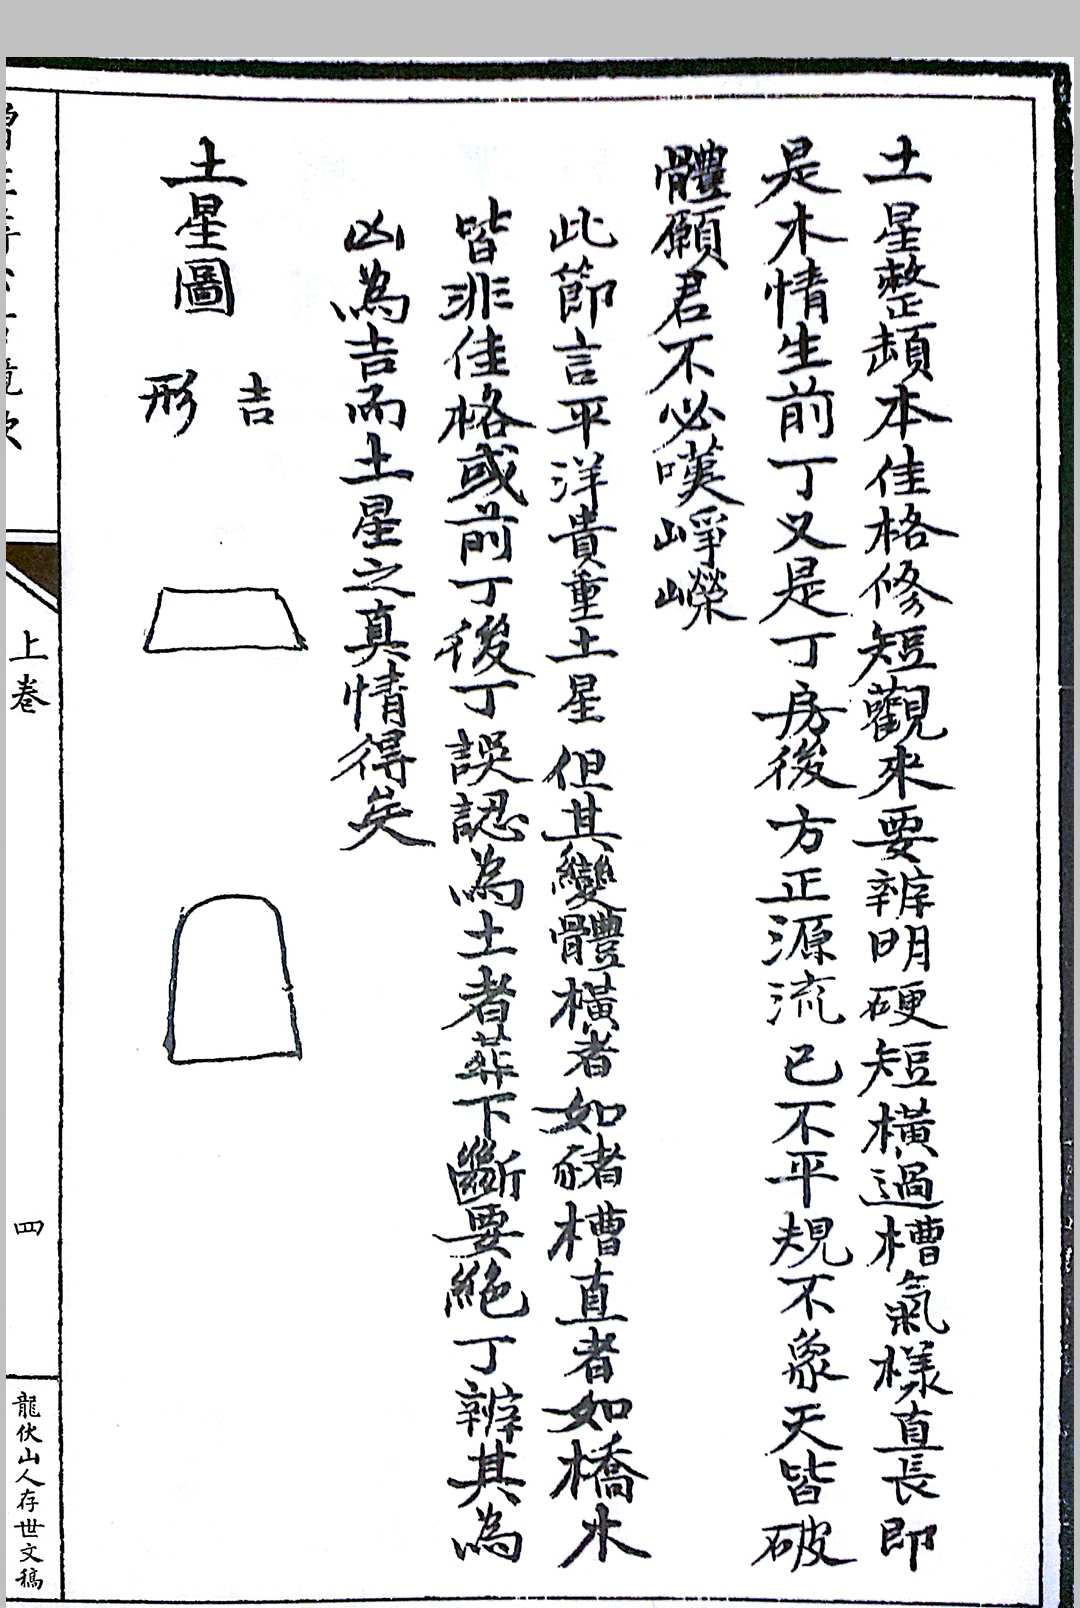 土星整頓本佳格修短觀來要辨明硬短橫過槽氣樣直長即
是木情生前丁又是丁房後方正源流已不平規不象天皆破
體願君不必嘆崢嶸
此節言平洋貴重土星但其變體橫者如豬槽直者如橋木
皆非佳格或前丁後丁誤認為土者葬下斷要絕丁辨其為
凶為吉而土星之真情得矣
土星圖
吉
形
上卷
四
龍伏山人存世文稿